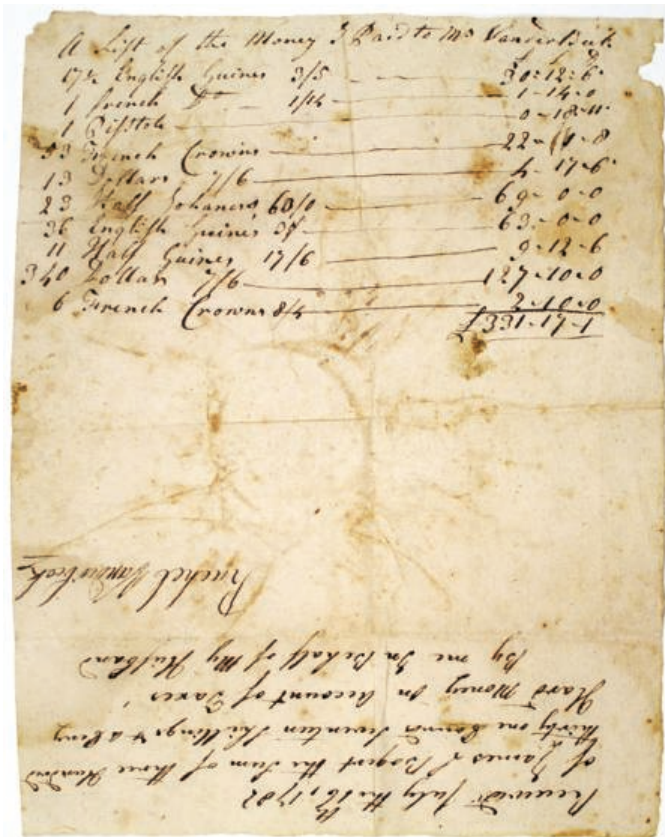 A List of the Money I Paid to Mrs VanderBeek
17½ English Guines 3/5 30=12=6
1 French Do 1/14 1-14-0
1 Pistole 0-18-11
53 French Crowns 22-1-8
13 Dollars 7/6 4-17-6
23 Half Johanes 60/0 69-0-0
36 English Guines 35 63-0-0
11 Half Guines 17/6 9-12-6
340 Dollars 7/6 127-10-0
6 French Crowns 8/4 2-10-0
£331-17-1
Received July the 16, 1782
of James Bogert the Sum of three Hundred
thirty one Pounds Seventeen Shillings & a peny
Hard Money on Account of Taxes,
By me In Behalf of My Husband
Rachel Vanderbeek